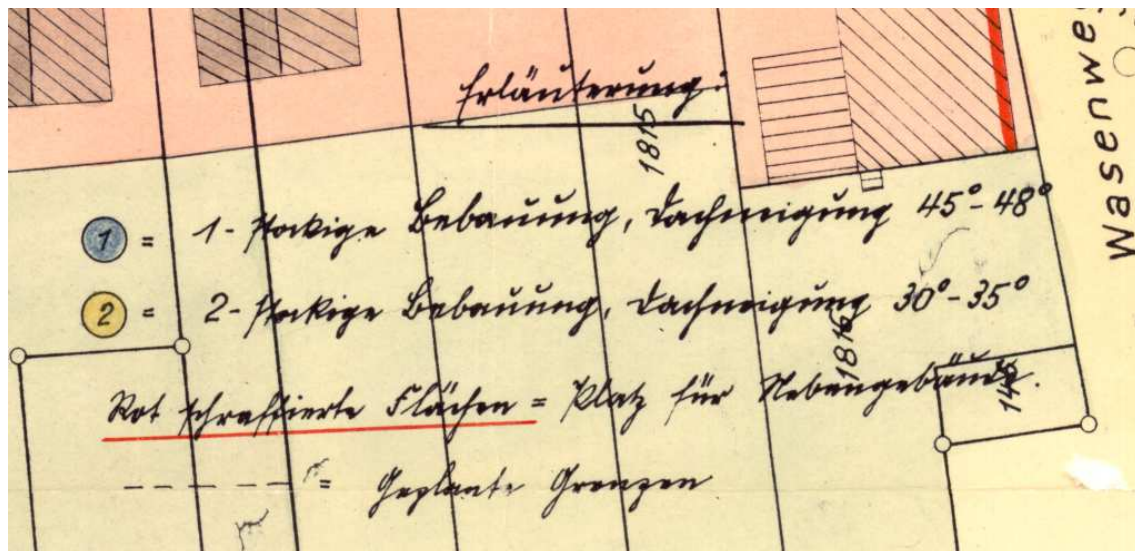 Erläuterung:
1815
Wasenwe
1 = 1-stockige Bebauung, Dachneigung 45°-48°
2 = 2-stockige Bebauung, Dachneigung 30°-35°
1816
Rot schraffierte Flächen = Platz für Nebengebäude.
- - - - - = Geplante Grenzen